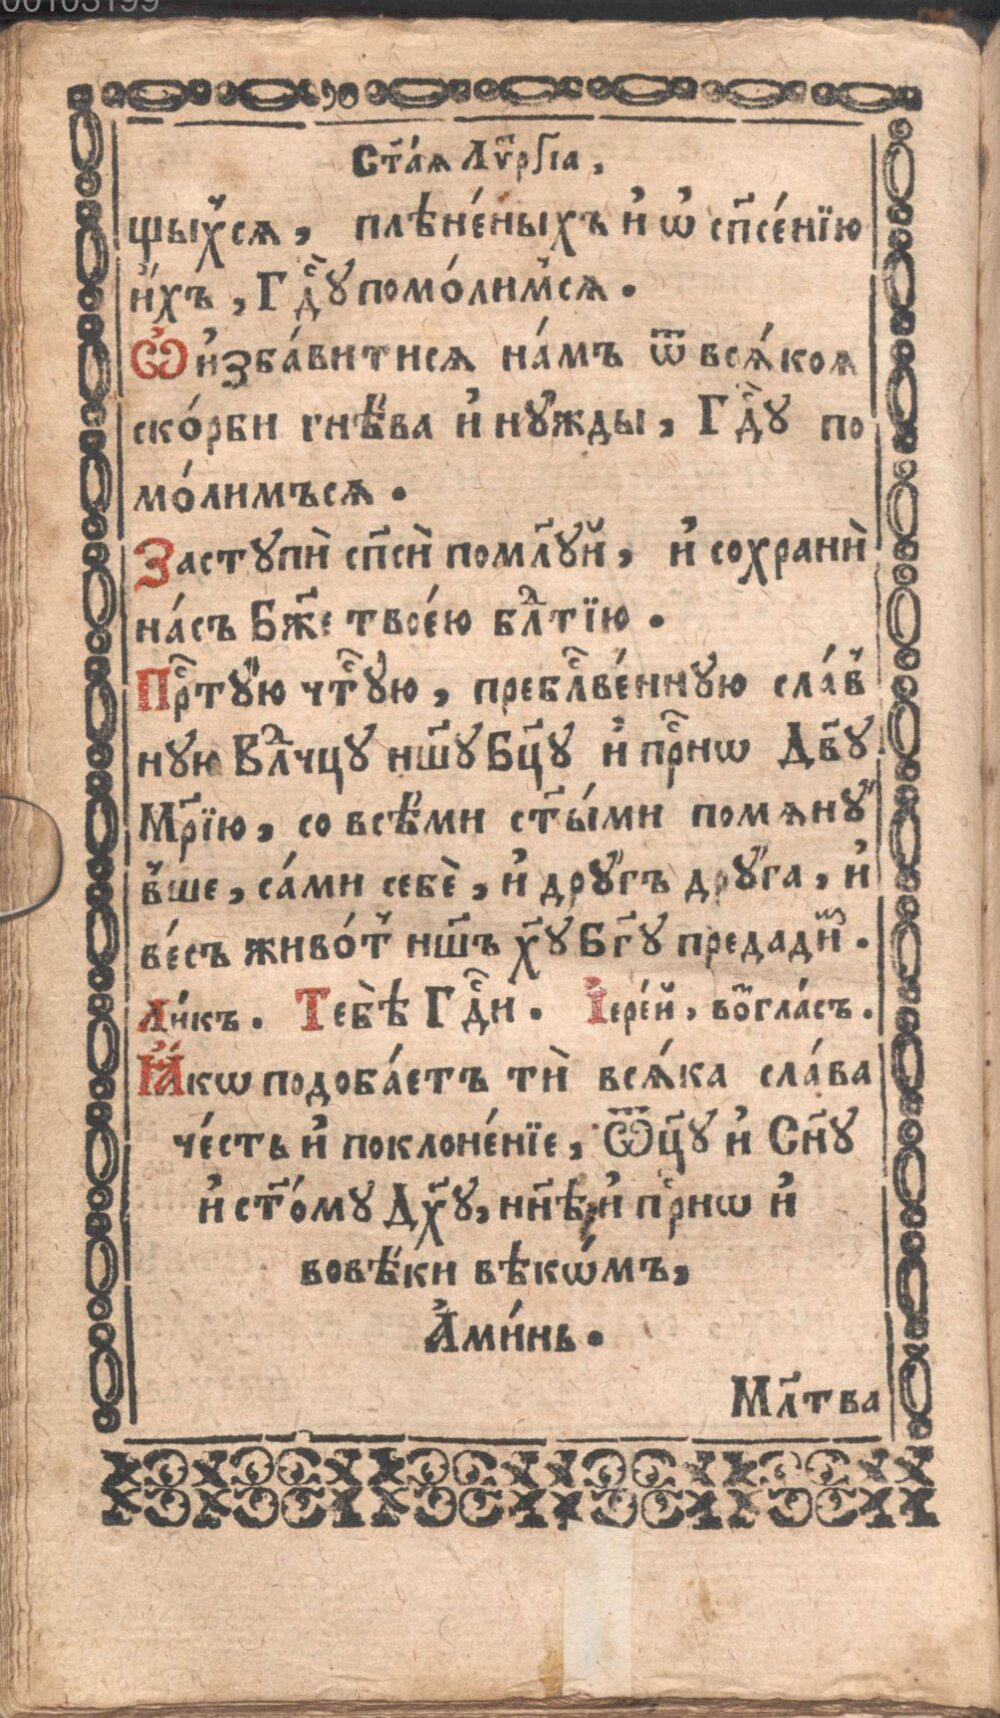 00103199
Ст҃а́ѧ Лѵ҃ргїа ,
щыⷯсѧ , плѣне́ныхъ и҆ ѡ҆ сп҃се́нїю
и҆́хъ , Гдⷭ҇ꙋ помо́лимсѧ .
Ѡ҆ и҆зба́витисѧ на́мъ ѿ всѧ́коѧ
ско́рби гнѣ́ва и҆ нꙋ́жды , Гдⷭ҇ꙋ по
мо́лимъсѧ .
Застꙋпѝ сп҃сѝ помл҃ꙋй , и҆ сохранѝ
на́съ Бж҃е твое́ю блⷣтїю .
Прⷭ҇тꙋ́ю чтⷭ҇ꙋю , преблⷭ҇ве́ннꙋю сла́в
нꙋю Влⷣчцꙋ нш҃ꙋ Бц҃ꙋ и҆ прⷭ҇нѡ Дв҃ꙋ
Мр҃їю , со всѣ́ми ст҃ы́ми помѧнꙋ́
вше , са́ми себѐ , и҆ дрꙋ́гъ дрꙋ́га , и҆
ве́сь живо́т нш҃ъ хр҃ꙋ Бг҃ꙋ предадиⷨ .
Ли́къ . Тебѣ̀ Гдⷭ҇и . І҆ере́й , воⷥгла́съ .
Ꙗ҆́кѡ подоба́етъ тѝ всѧ́ка сла́ва
че́сть и҆ поклоне́нїе , Ѿц҃ꙋ и҆ Сн҃ꙋ
и҆ ст҃о́мꙋ Дх҃ꙋ , нн҃ѣ и҆ прⷭ҇нѡ и҆
вовѣ́ки вѣкѡ́мъ ,
А҆ми́нь .
Мл҃тва